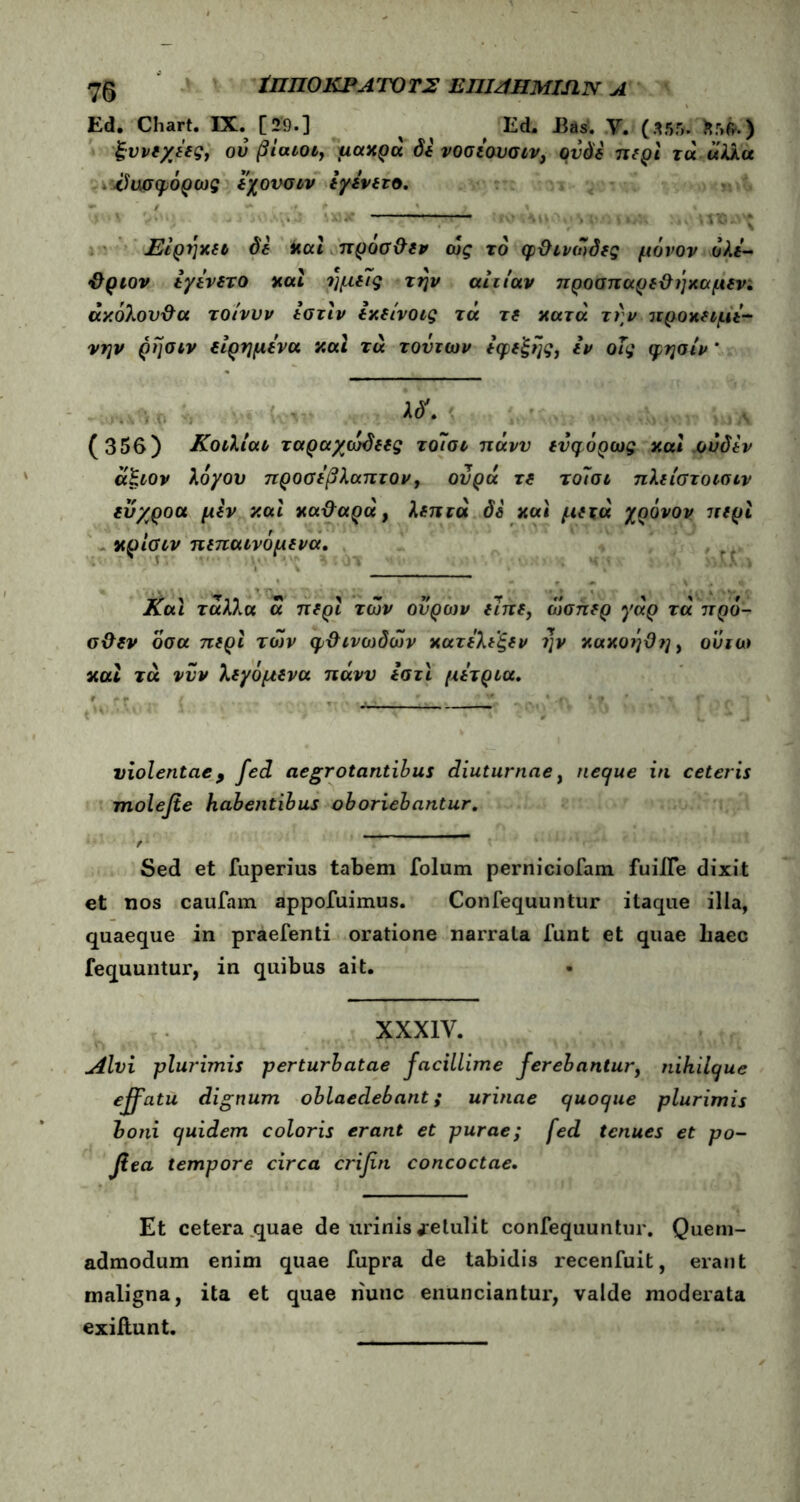 76 ἹΠΠΟΚΡΑΤΟΥΣ ΕΠΙΔΗΜΙΩΝ Α
Ed. Chart. IX. [29.] Ed. Bas. V. (355. 356.)
ξυνεχέες, οὐ βίαιοι, μακρὰ δὲ νοσέουσιν, οὐδὲ περὶ τὰ ἄλλα
δυσφόρως ἔχουσιν ἐγένετο.
Εἰρήκει δὲ καὶ πρόσθεν ὡς τὸ φθινῶδες μόνον ὀλέ-
θριον ἐγένετο καὶ ἡμεῖς τὴν αἰτίαν προσπαρεθήκαμεν.
ἀκόλουθα τοίνυν ἐστὶν ἐκείνοις τά τε κατὰ τὴν προκειμέ-
νην ῥῆσιν εἰρημένα καὶ τὰ τούτων ἐφεξῆς, ἐν οἷς φησίν·
λδ'.
(356) Κοιλίαι ταραχώδεες τοῖσι πάνυ εὐφόρως καὶ οὐδὲν
ἄξιον λόγου προσέβλαπτον, οὐρά τε τοῖσι πλείστοισιν
εὔχροα μὲν καὶ καθαρὰ, λεπτὰ δὲ καὶ μετὰ χρόνον περὶ
κρίσιν πεπαινόμενα.
Καὶ τἄλλα ἃ περὶ τῶν οὔρων εἶπε, ὥσπερ γὰρ τὰ πρό-
σθεν ὅσα περὶ τῶν φθινωδῶν κατέλεξεν ἦν κακοήθη, οὕτω
καὶ τὰ νῦν λεγόμενα πάνυ ἐστὶ μέτρια.
violentae, ſed aegrotantibus diuturnae, neque in ceteris
moleſte habentibus oboriebantur.
Sed et ſuperius tabem ſolum pernicioſam fuiſſe dixit
et nos cauſam appoſuimus. Conſequuntur itaque illa,
quaeque in praeſenti oratione narrata ſunt et quae haec
ſequuntur, in quibus ait.
XXXIV.
Alvi plurimis perturbatae facillime ferebantur, nihilque
effatu dignum oblaedebant; urinae quoque plurimis
boni quidem coloris erant et purae; ſed tenues et po-
ſtea tempore circa criſin concoctae.
Et cetera quae de urinis retulit conſequuntur. Quem-
admodum enim quae ſupra de tabidis recenſuit, erant
maligna, ita et quae nunc enunciantur, valde moderata
exiſtunt.